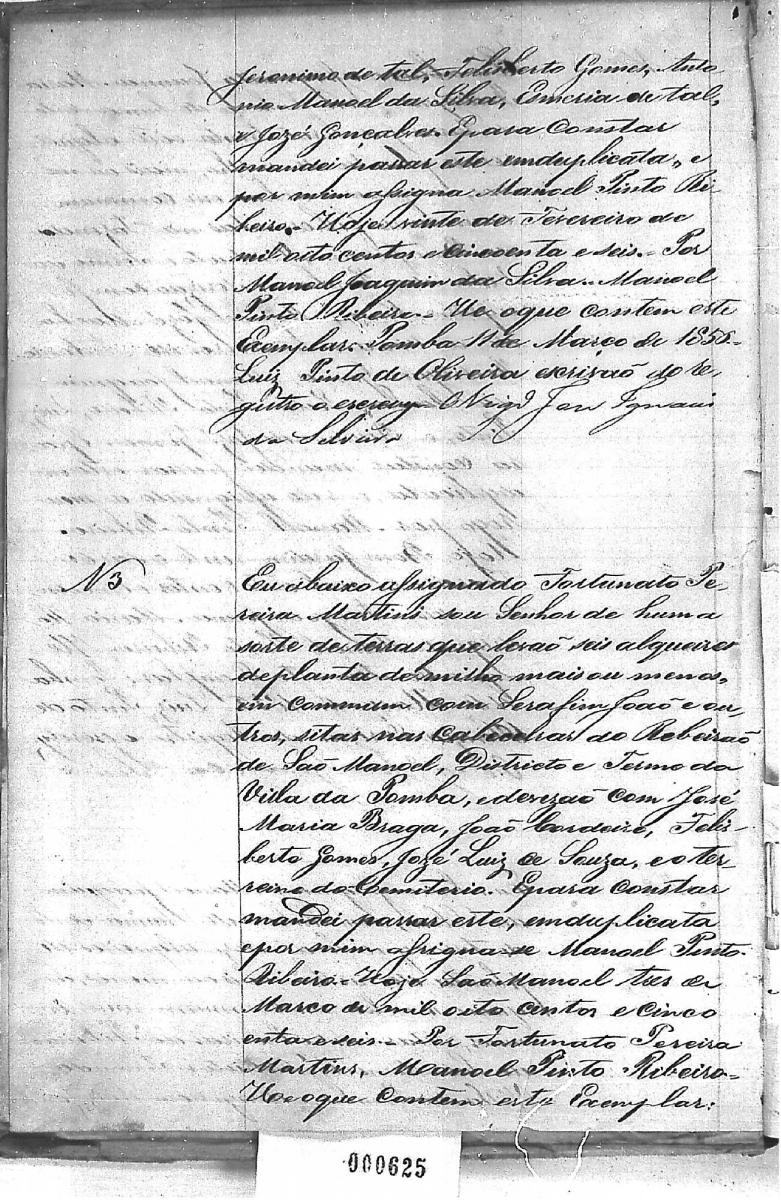 Jeronimo de tal, Felisberto Gomes, Anto-
nio Manoel da Silva, Esmeria de tal,
e Jozé Gonçalves. Epara Constar
mandei passar este emduplicata, e
por mim assigna Manoel Pinto Ri-
beiro. Hoje vinte de Fevereiro de
mil oito centos e cincoenta e seis. Por
Manoel Joaquim da Silva. Manoel
Pinto Ribeiro. He oque contem este
Exemplar. Pomba 11 de Março de 1856.
Luiz Pinto de Oliveira escrivaõ do re-
gistro o escrevy. O Vigr.o Ignacio
da
N 3
Eu abaixo assignado Fortunato Pe-
reira Martins sou Senhor de huma
sorte de terras que levaõ seis alqueires
deplanta de milho mais ou menos,
em commum com Serafim Joaõ e ou-
tros, sitas nas Cabiceiras do Ribeiraõ
de Saõ Manoel, Districto e Termo da
Villa da Pomba, edevizaõ com José
Maria Braga, Joaõ Cordeiro, Feliz-
berto Gomes, Jozé Luiz de Souza, e o ter-
reino do Cemiterio. Epara constar
mandei passar este, emduplicata
epor mim assigna se Manoel Pinto
Ribeiro. Hoje Saõ Manoel tres de
Marco de mil oito centos e cinco
enta e seis. Por Fortunato Pereira
Martins, Manoel Pinto Ribeiro.
He oque Contem este Exemplar.
000625